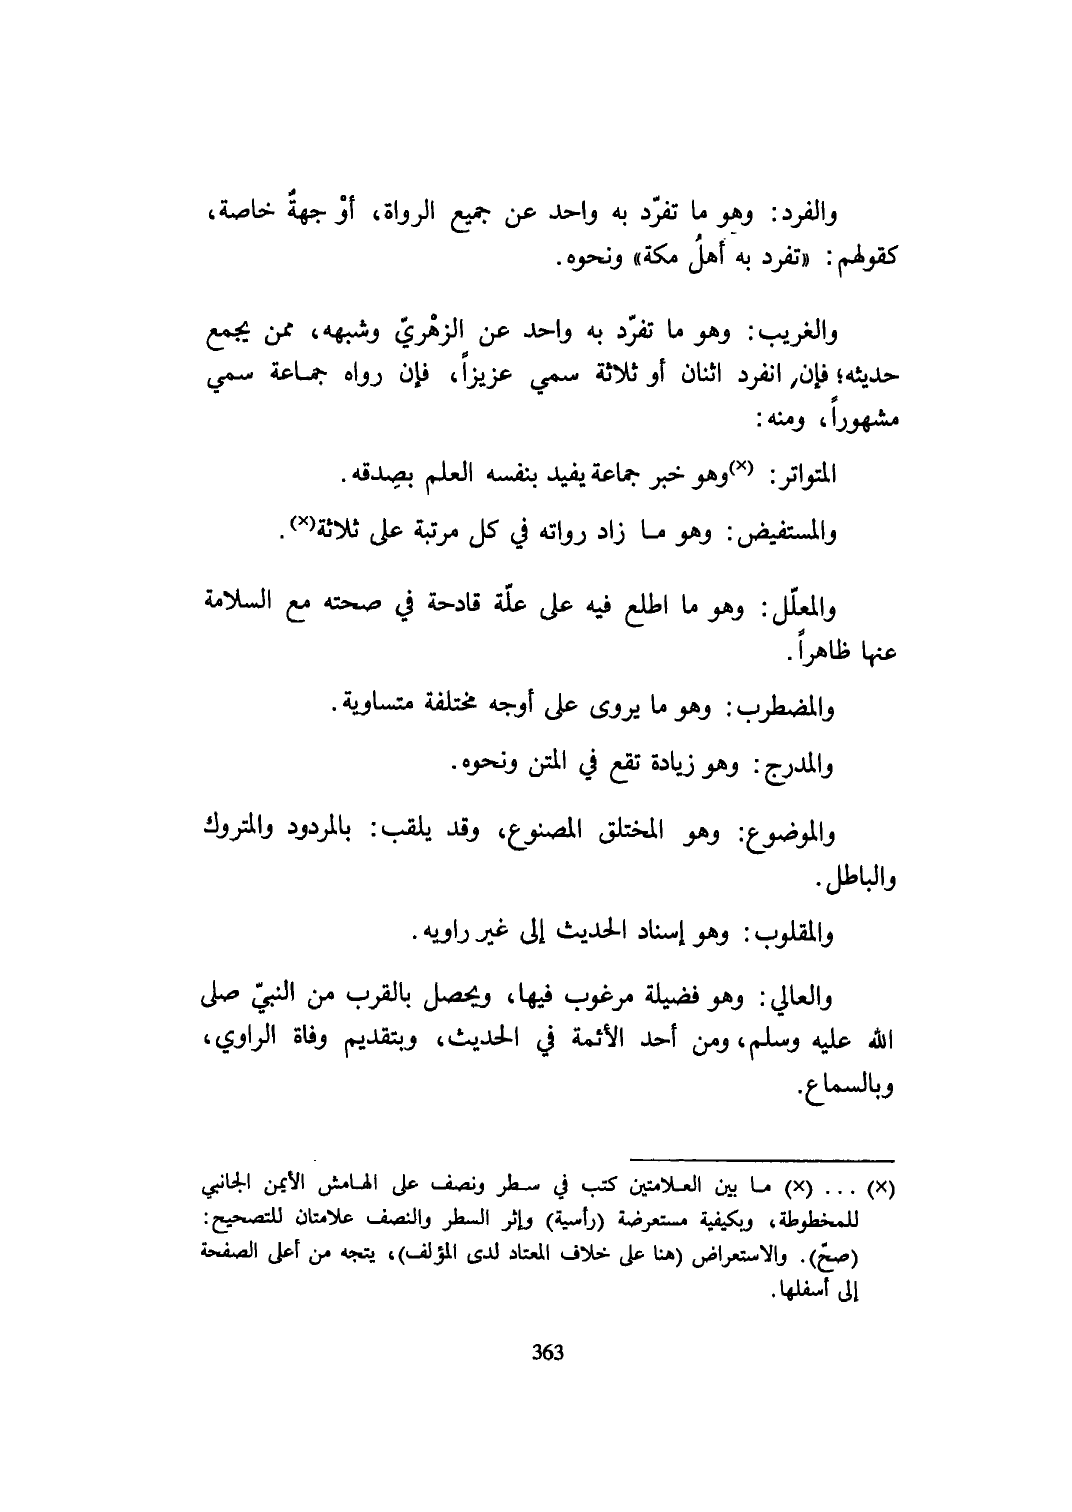 والفرد: وهو ما تفرّد به واحد عن جميع الرواة، أوْ جهةٌ خاصة،
كقولهم: «تفرد به أهلُ مكة» ونحوه.
والغريب: وهو ما تفرّد به واحد عن الزهْريّ وشبهه، ممن يجمع
حديثه؛ فإن انفرد اثنان أو ثلاثة سمي عزيزاً، فإن رواه جماعة سمي
مشهوراً، ومنه:
المتواتر: (×)وهو خبر جماعة يفيد بنفسه العلم بصِدقه.
والمستفيض: وهو ما زاد رواته في كل مرتبة على ثلاثة(×).
والمعلّل: وهو ما اطلع فيه على علّة قادحة في صحته مع السلامة
عنها ظاهراً.
والمضطرب: وهو ما يروى على أوجه مختلفة متساوية.
والمدرج: وهو زيادة تقع في المتن ونحوه.
والموضوع: وهو المختلق المصنوع، وقد يلقب: بالمردود والمتروك
والباطل.
والمقلوب: وهو إسناد الحديث إلى غير راويه.
والعالي: وهو فضيلة مرغوب فيها، ويحصل بالقرب من النبيّ صلى
الله عليه وسلم، ومن أحد الأئمة في الحديث، وبتقديم وفاة الراوي،
وبالسماع.
(×) ... (×) ما بين العلامتين كتب في سطر ونصف على الهامش الأيمن الجانبي
للمخطوطة، وبكيفية مستعرضة (رأسية) وإثر السطر والنصف علامتان للتصحيح:
(صحّ). والاستعراض (هنا على خلاف المعتاد لدى المؤلف)، يتجه من أعلى الصفحة
إلى أسفلها.
363